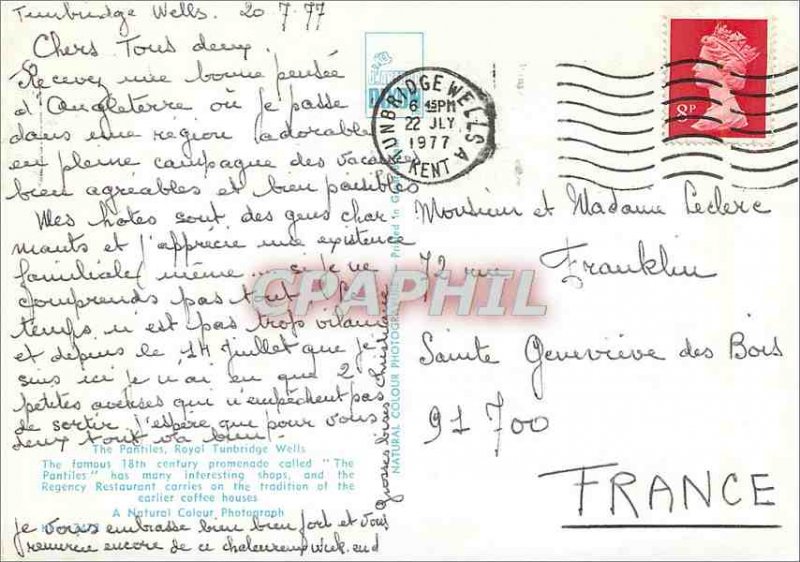 Tunbridge Wells. 20.7.77
Chers Tous deux.
Recevez une bonne pensée
d'Angleterre où je passe
dans une région adorable
en pleine campagne des vacances
bien agréables et bien paisibles
Mes hotes sont des gens char-
mants et j'apprécie une existence
familiale même... si je ne
comprends pas tout. Le
temps n'est pas trop vilain
et depuis le 14 Juillet que je
suis ici je n'ai eu que 2
petites averses qui n'empêchent pas
de sortir. J'espère que pour vous
deux tout va bien.
The Pantiles, Royal Tunbridge Wells
The famous 18th century promenade called "The
Pantiles" has many interesting shops, and the
Regency Restaurant carries on the tradition of the
earlier coffee houses
A Natural Colour Photograph
je vous embrasse bien bien fort et vous
remercie encore de ce chaleureux week.end
grosses bises Christiane
NATURAL COLOUR PHOTOGRAPH
Printed in
TUNBRIDGE WELLS A
6 45PM
22 JLY
1977
KENT
8P
Monsieur et Madame Leclerc
72 rue Franklin
Sainte Geneviève des Bois
91700
FRANCE
CPAPHIL